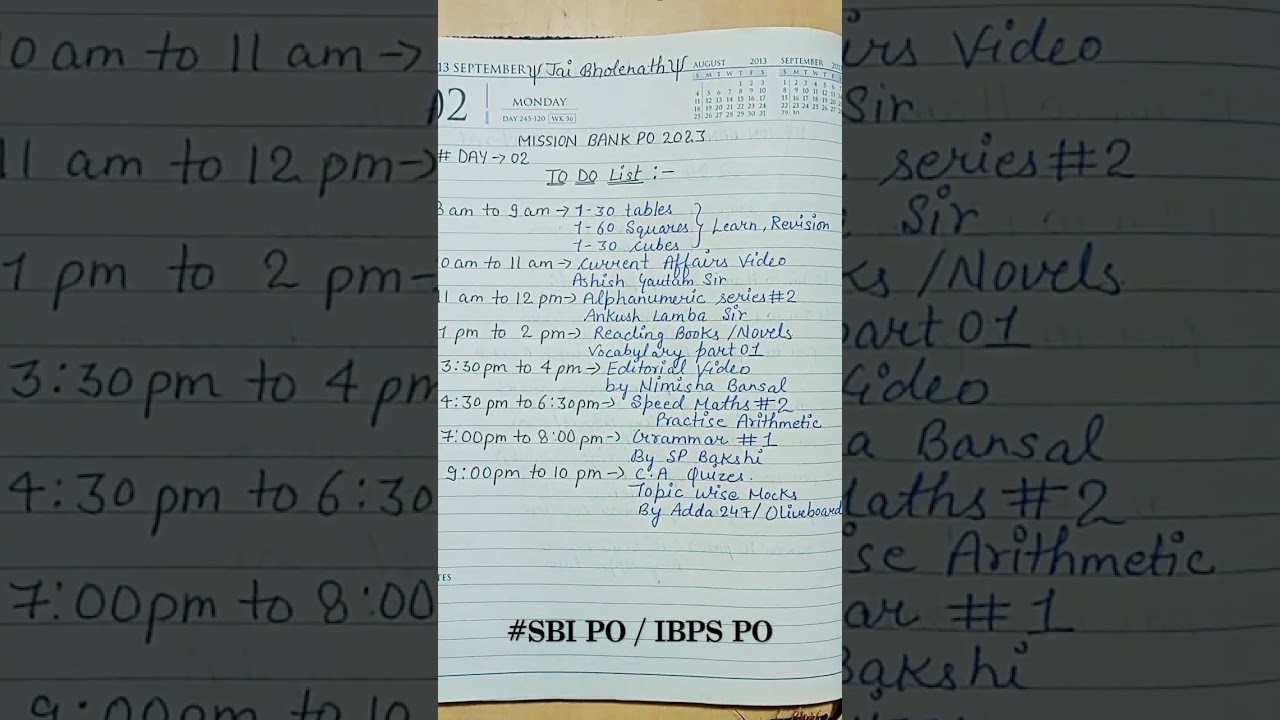 13 SEPTEMBER Ψ Jai Bholenath Ψ
AUGUST 2013 SEPTEMBER
S M T W T F S
1 2 3
4 5 6 7 8 9 10
11 12 13 14 15 16 17
18 19 20 21 22 23 24
25 26 27 28 29 30 31
02
MONDAY
DAY 245-120 WK 36
MISSION BANK PO 2023
# DAY → 02
TO DO List :-
8 am to 9 am → 1-30 tables
1-60 Squares } Learn, Revision
1-30 cubes
0 am to 11 am → Current Affairs Video
Ashish Gautam Sir
11 am to 12 pm → Alphanumeric series #2
Ankush Lamba Sir
1 pm to 2 pm → Reading Books / Novels
Vocabylary part 01
3:30 pm to 4 pm → Editorial Video
by Nimisha Bansal
4:30 pm to 6:30 pm → Speed Maths #2
Practise Arithmetic
7:00 pm to 8:00 pm → Grammar #1
By SP Bakshi
9:00 pm to 10 pm → C.A. Quizes.
Topic Wise Mocks
By Adda 247 / Oliveboard
TES
#SBI PO / IBPS PO